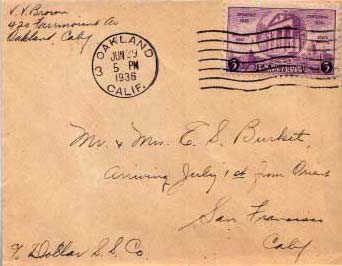 V. V. Brown
420 Fairmount Av
Oakland, Calif
OAKLAND
JUN 29
5 PM
1936
CALIF.
3
Mr. & Mrs. E. S. Burket,
Arriving July 1st from Orient
San Francisco
Calif
% Dollar S. S. Co.